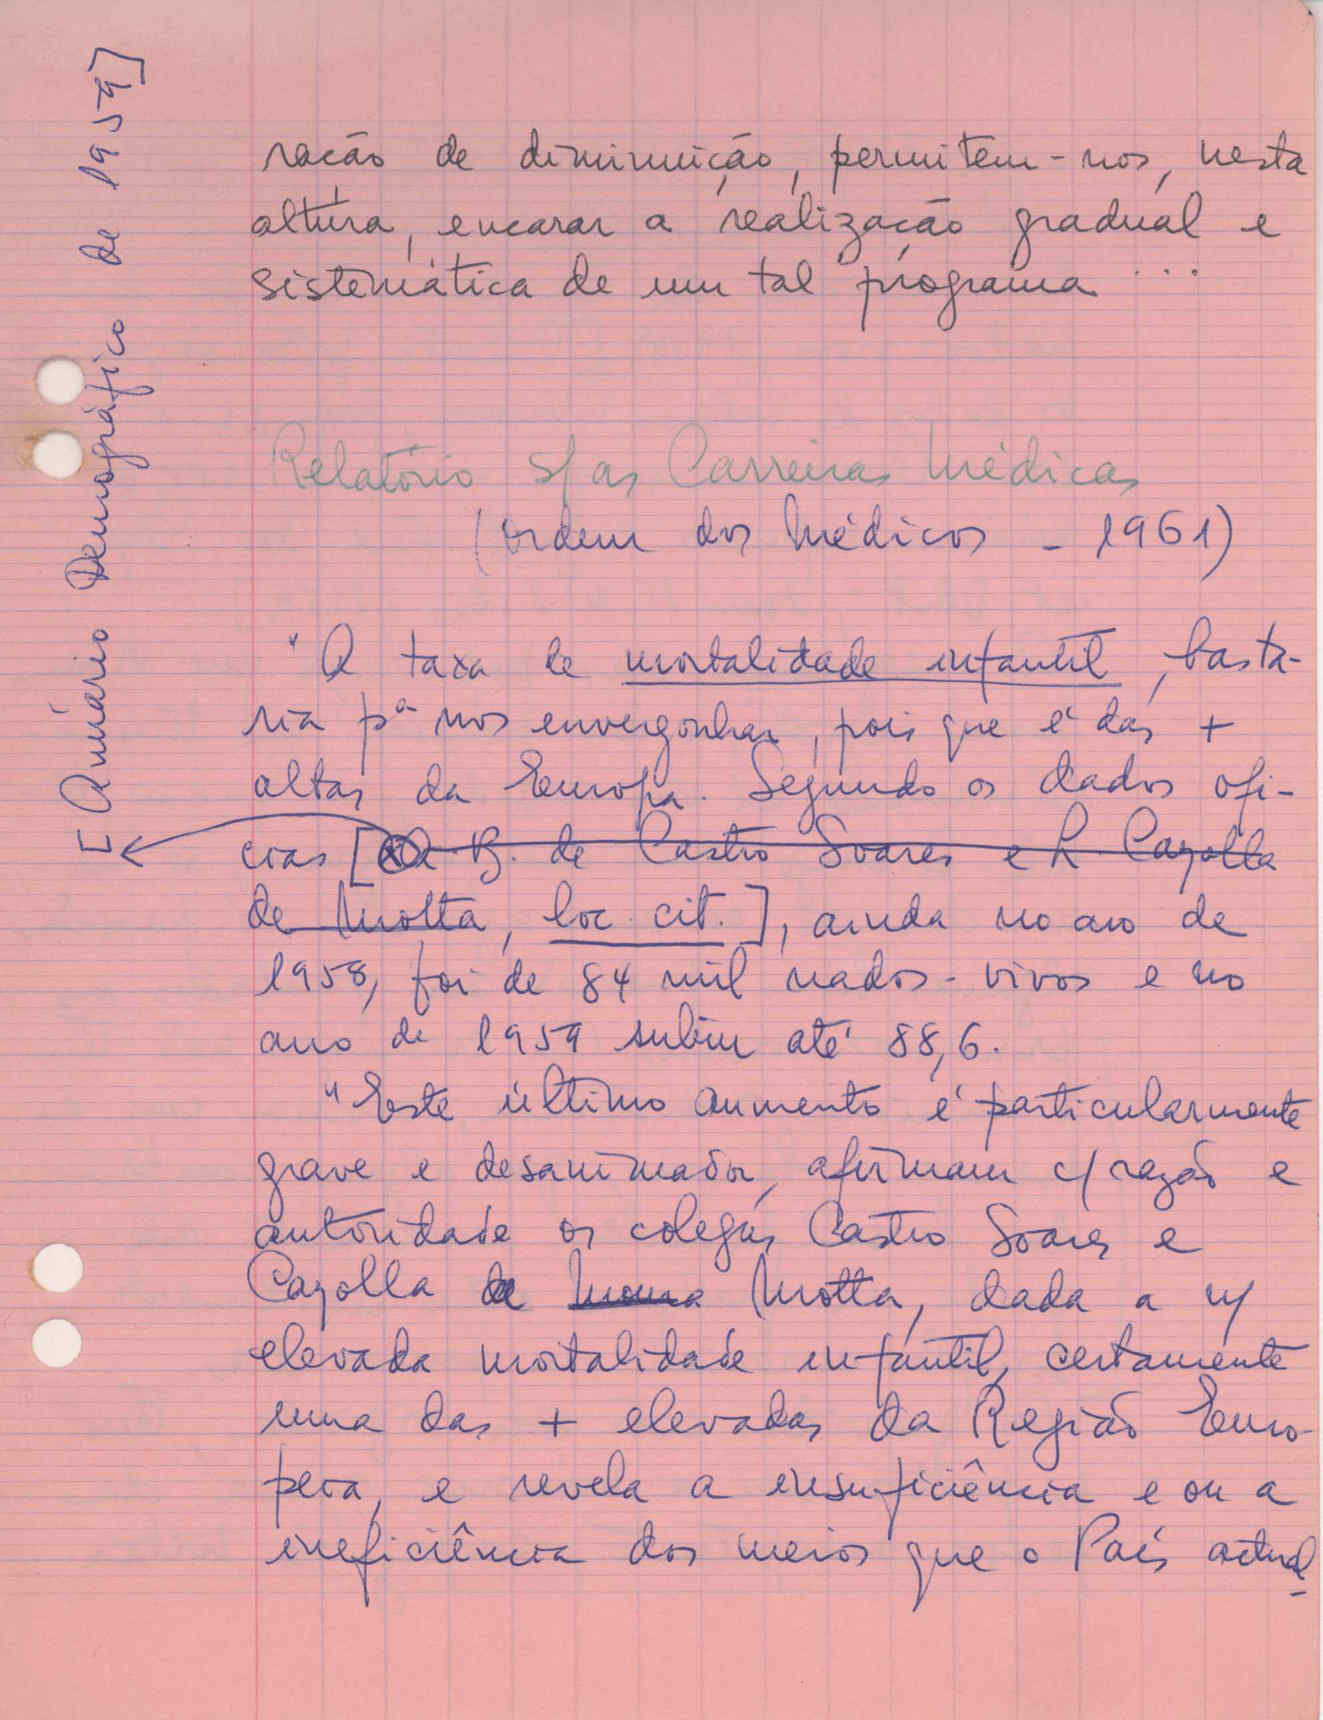 ração de diminuição, permitem-nos, nesta
altura, encarar a realização gradual e
sistemática de um tal programa ...
Relatório s/ as Carreiras Médicas
(Ordem dos Médicos - 1961)
"A taxa de mortalidade infantil, basta-
ria pª nos envergonhar, pois que é das +
altas da Europa. Segundo os dados ofi-
ciais [A. B. de Castro Soares e L. Cayolla
de Motta, loc. cit.], ainda no ano de
1958, foi de 84 mil nados-vivos e no
ano de 1959 subiu até 88,6.
"Este último aumento é particularmente
grave e desanimador, afirmam c/ razão e
autoridade os colegas Castro Soares e
Cayolla de Motta, dada a n/
elevada mortalidade infantil, certamente
uma das + elevadas da Região Euro-
peia, e revela a insuficiência e ou a
ineficiência dos meios que o País actual-
[Anuário Demográfico de 1959]